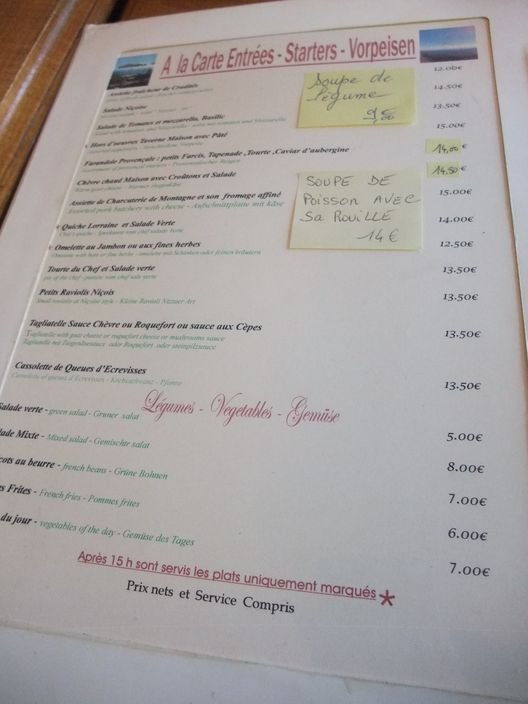 A la Carte Entrées - Starters - Vorpeisen
Assiette fraîcheur de Crudités 12.00€
Salade Niçoise 14.50€
Salade de Tomates et mozzarella, Basilic 13.50€
Hors d'oeuvres Taverne Maison avec Pâté 15.00€
Farandole Provençale : petits Farcis, Tapenade, Tourte, Caviar d'aubergine 14,00€
Chèvre chaud Maison avec Croûtons et Salade 14,50€
Assiette de Charcuterie de Montagne et son fromage affiné 15.00€
Assorted pork butchery with cheese - Aufschnittplatte mit Käse
Soupe de
légume
9€
SOUPE DE
POISSON AVEC
SA ROUILLE
14€
Quiche Lorraine et Salade Verte 14.00€
Omelette au Jambon ou aux fines herbes 12.50€
Tourte du Chef et Salade verte 13.50€
Petits Raviolis Niçois 13.50€
Small raviolis at Niçoise style - Kleine Ravioli Nizzaer Art
Tagliatelle Sauce Chèvre ou Roquefort ou sauce aux Cèpes 13.50€
Tagliatelle with goat cheese or roquefort cheese or mushrooms sauce
Tagliatelle mit Ziegenkäsesauce oder Roquefort oder steinpilzsauce
Cassolette de Queues d'Ecrevisses 13.50€
Légumes - Vegetables - Gemüse
Salade verte - green salad - Gruner salat 5.00€
lade Mixte - Mixed salad - Gemischtr salat 8.00€
cots au beurre - french beans - Grüne Bohnen 7.00€
s Frites - French fries - Pommes frites 6.00€
du jour - vegetables of the day - Gemüse des Tages 7.00€
Après 15 h sont servis les plats uniquement marqués *
Prix nets et Service Compris